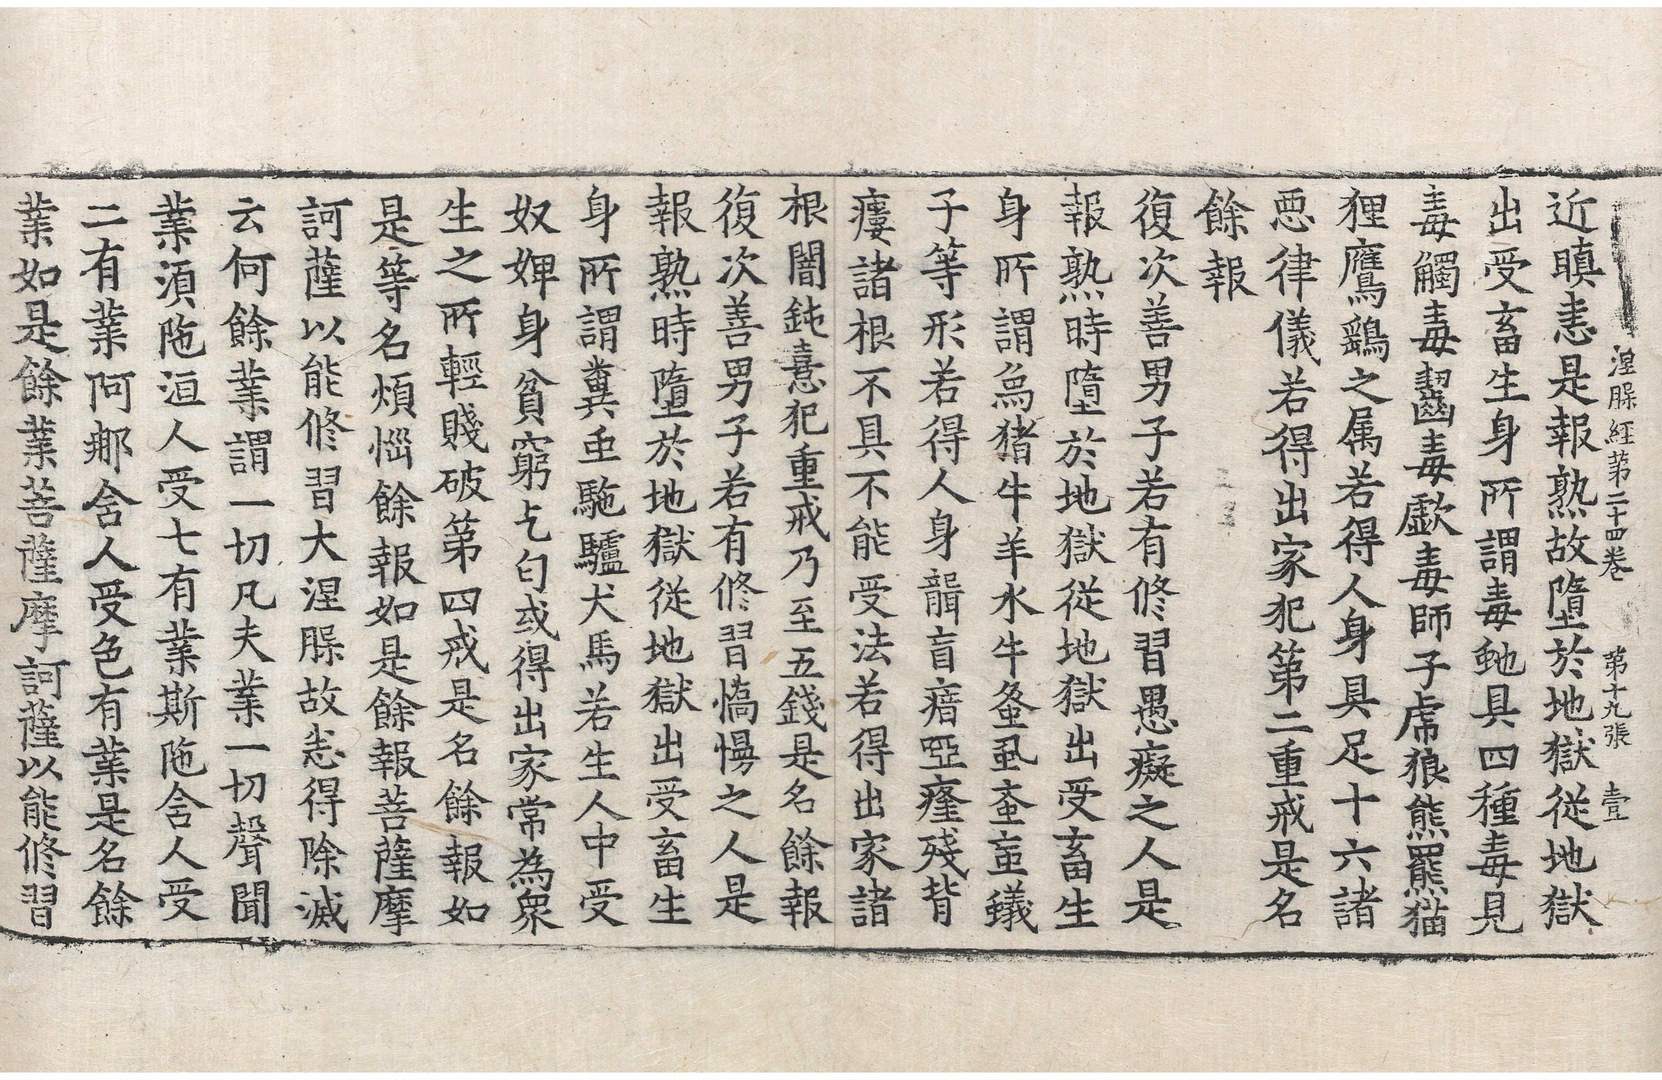 涅槃経苐二十四卷 苐十九張 壹
近瞋恚是報熟故墮於地獄從地獄
出受畜生身所謂毒虵具四種毒見
毒觸毒齧毒歔毒師子虎狼熊羆猫
狸鷹鷂之属若得人身具足十六諸
惡律儀若得出家犯第二重戒是名
餘報
復次善男子若有修習愚癡之人是
報熟時墮於地獄從地獄出受畜生
身所謂烏猪牛羊水牛蚤虱蚉䖟蟻
子等形若得人身聾盲瘖瘂癃殘背
瘻諸根不具不能受法若得出家諸
根闇鈍憙犯重戒乃至五錢是名餘報
復次善男子若有修習憍慢之人是
報熟時墮於地獄從地獄出受畜生
身所謂糞虫駞驢犬馬若生人中受
奴婢身貧窮乞匃或得出家常為衆
生之所輕賤破第四戒是名餘報如
是等名煩惱餘報如是餘報菩薩摩
訶薩以能修習大涅槃故悉得除滅
云何餘業謂一切凡夫業一切聲聞
業須陁洹人受七有業斯陁含人受
二有業阿那含人受色有業是名餘
業如是餘業菩薩摩訶薩以能修習